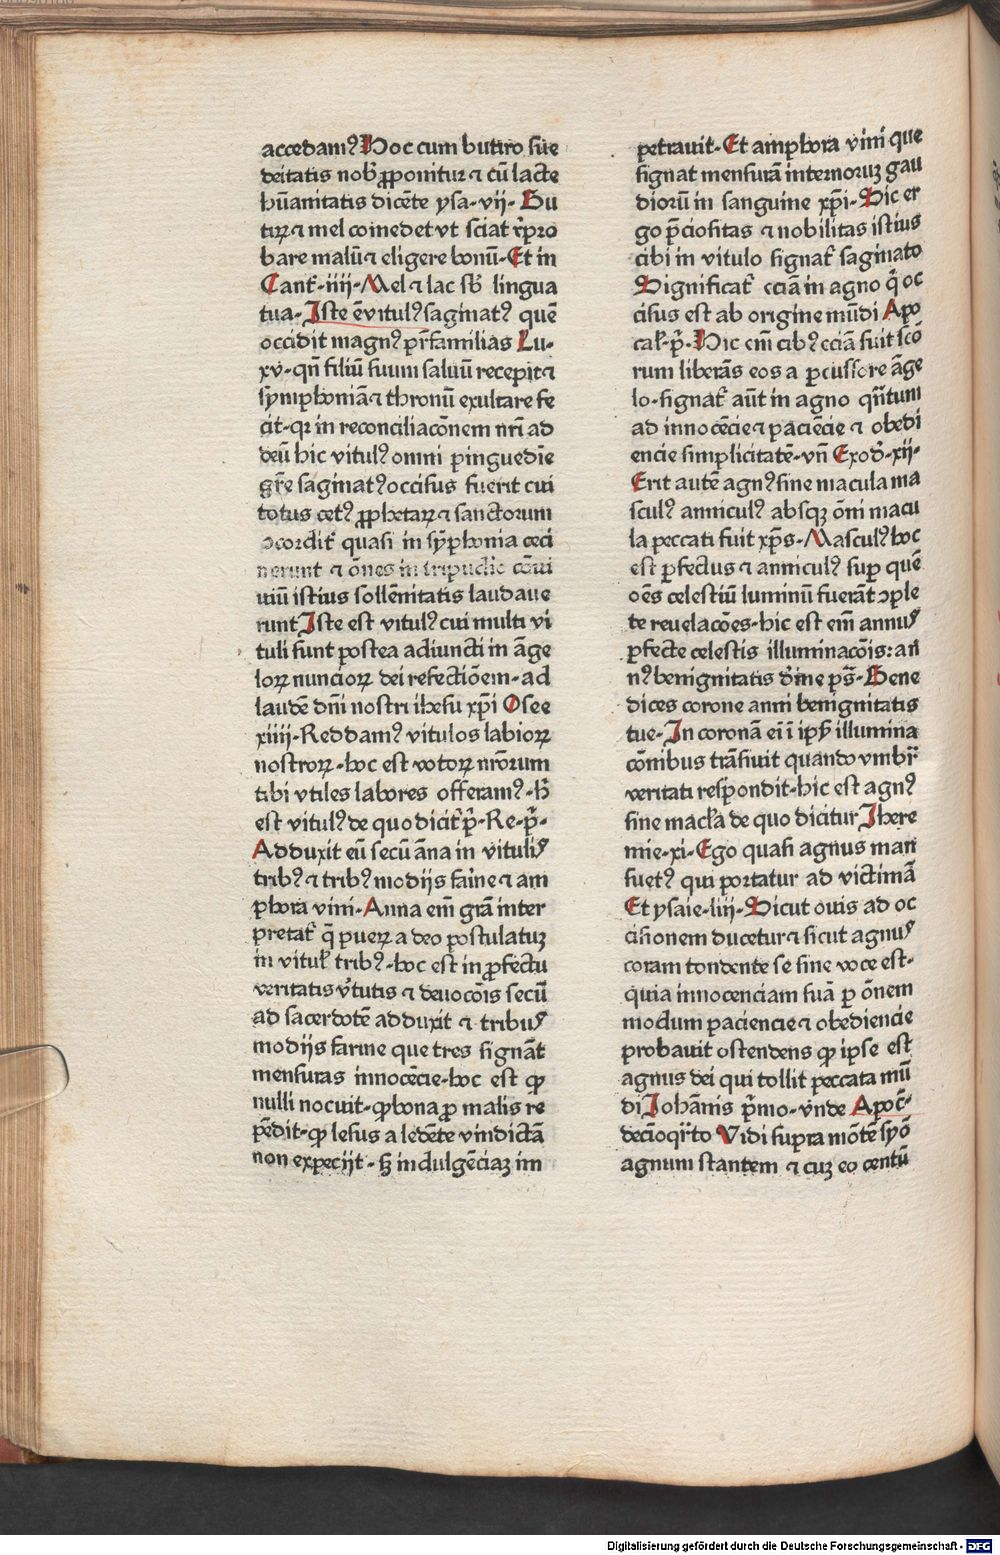 accedamꝰ Hoc cum butiro sue
deitatis nob̛ ꝓponitur ⁊ cū lacte
hūanitatis dicēte ysa·vij· Bu
tirꝝ ⁊ mel comedet vt sciat r̄pro
bare malū ⁊ eligere bonū· Et in
Cant̛·iiij· Mel ⁊ lac sb̛ lingua
tua· Iste ē vitulꝰ saginatꝰ quē
occidit magnꝰ pr̄familias Lu·
xv· qn̄ filiū suum saluū recepit ⁊
sȳmphoniā ⁊ thronū exultare fe
cit· qꝛ in reconciliacōnem nr̄i ad
deū hic vitulꝰ omni pinguedīe
gr̄e saginatꝰ occisus fuerit cui
totus cetꝰ ꝓphetaꝝ ⁊ sanctorum
ꝯcordit̛ quasi in sȳphonia ceci
nerunt ⁊ ōnes in tripudio cōui
uiū istius sollēnitatis laudaue
runt Iste est vitulꝰ cui multi vi
tuli sunt postea adiuncti in āge
loꝝ nuncioꝝ dei refectiōem· ad
laudē dn̄i nostri ihesu xp̄i Osee
xiiij· Reddamꝰ vitulos labioꝝ
nostroꝝ· hoc est votoꝝ nr̄orum
tibi vtiles labores offeramꝰ· H̛
est vitulꝰ de quo dicit̛ p̄· Re·p̄·
Adduxit eū secū āna in vitulis
tribꝰ ⁊ tribꝰ modijs farīne ⁊ am
phora vini· Anna em̄ grā inter
pretat̛ q̄ pueꝝ a deo postulatuꝫ
in vitul̛ tribꝰ· hoc est in ꝓfectu
veritatis v̛tutis ⁊ deuocōis secū
ad sacerdotē adduxit ⁊ tribus
modijs farine que tres signāt
mensuras innocēcie· hoc est ꝙ
nulli nocuit· ꝙ bona ꝓ malis re
pēdit· ꝙ lesus a ledēte vindictā
non expecijt· sꝫ indulgēciaꝫ im
petrauit· Et amphora vini que
signat mensurā internoruꝫ gau
diorū in sanguine xp̄i· Hic er
go p̄ciositas ⁊ nobilitas istius
cibi in vitulo signat̛ saginato
Significat̛ eciā in agno q̄ oc
cisus est ab origine mūdi Apo
cal̛·p̄· Hic em̄ cibꝰ eciā fuit sc̄o
rum liberās eos a ꝑcussore āge
lo· signat̛ aūt in agno qn̄tum
ad innocēcie ⁊ paciēcie ⁊ obedi
encie simplicitatē· vn̄ Exod̛·xij·
Erit autē agnꝰ sine macula ma
sculꝰ anniculꝰ absqꝫ ōni macu
la peccati fuit xp̄s· Masculꝰ hoc
est ꝑfectus ⁊ anniculꝰ suꝑ quē
oēs celestiū luminū fuerāt ꝯple
te reuelacōes· hic est em̄ annus
ꝑfecte celestis illuminacōis: an
nꝰ benignitatis d̛ īne ps̄· Bene
dices corone anni benignitatis
tue· In coronā ei ī ip̄s illumina
cōnibus trāsiuit quando vmbr̄
veritati respondit· hic est agnꝰ
sine macl̛a de quo dicitur Ihere
mie·xi· Ego quasi agnus man
suetꝰ qui portatur ad victimā
Et ysaie·liij· Sicut ouis ad oc
cisionem ducetur ⁊ sicut agnus
coram tondente se sine voce est·
quia innocenciam suā ꝑ ōnem
modum paciencie ⁊ obediencie
probauit ostendens ꝙ ipse est
agnus dei qui tollit peccata mū
di Iohānis p̄mo· vnde Apoc̄·
decīoqr̄to Vidi supra mōtē syō
agnum stantem ⁊ cuꝫ eo centū
Digitalisierung gefördert durch die Deutsche Forschungsgemeinschaft - DFG